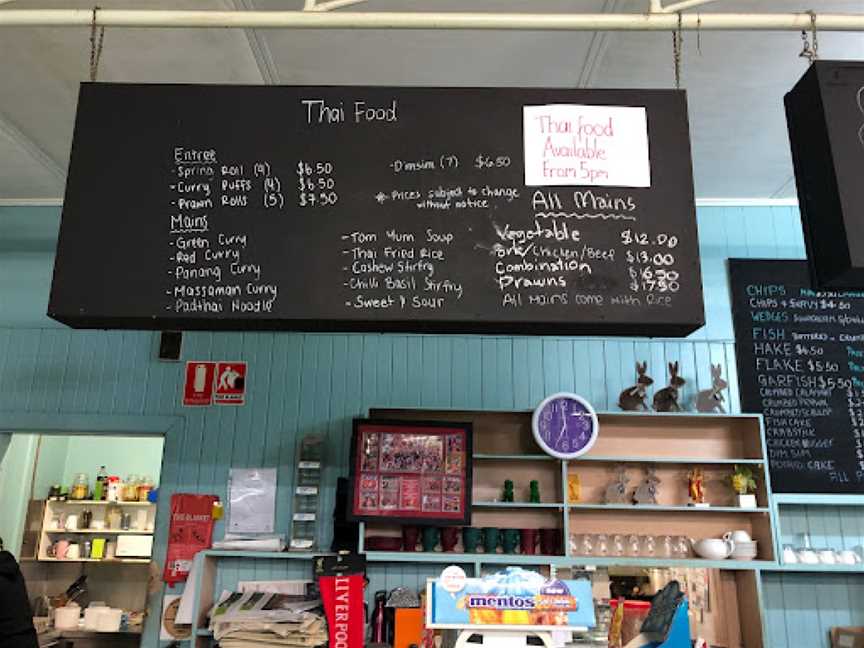 Thai Food
Entree
- Spring Roll (4) $6.50
- Curry Puffs (4) $6.50
- Prawn Rolls (5) $7.50
Mains
- Green Curry
- Red Curry
- Panang Curry
- Massaman Curry
- Padthai Noodle
- Dimsim (7) $6.50
* Prices subject to change
without notice
- Tom Yum Soup
- Thai Fried Rice
- Cashew Stirfry
- Chilli Basil Stirfry
- Sweet & Sour
Thai food
Available
From 5pm
All Mains
Vegetable $12.00
Pork/Chicken/Beef $13.00
Combination $16.50
Prawns $17.50
All Mains come with Rice
CHIPS
CHIPS + GRAVY $4.50
WEDGES
FISH
HAKE $6.50
FLAKE $5.50
GARFISH $5.50
CRUMBED CALAMARI
CRUMBED PRAWN
CRUMBED SCALLOP
FISH CAKE
CRABSTICK
CHICKEN BURGER
DIM SIM
POTATO CAKE
FIRE BLANKET
LIVERPOOL
mentos